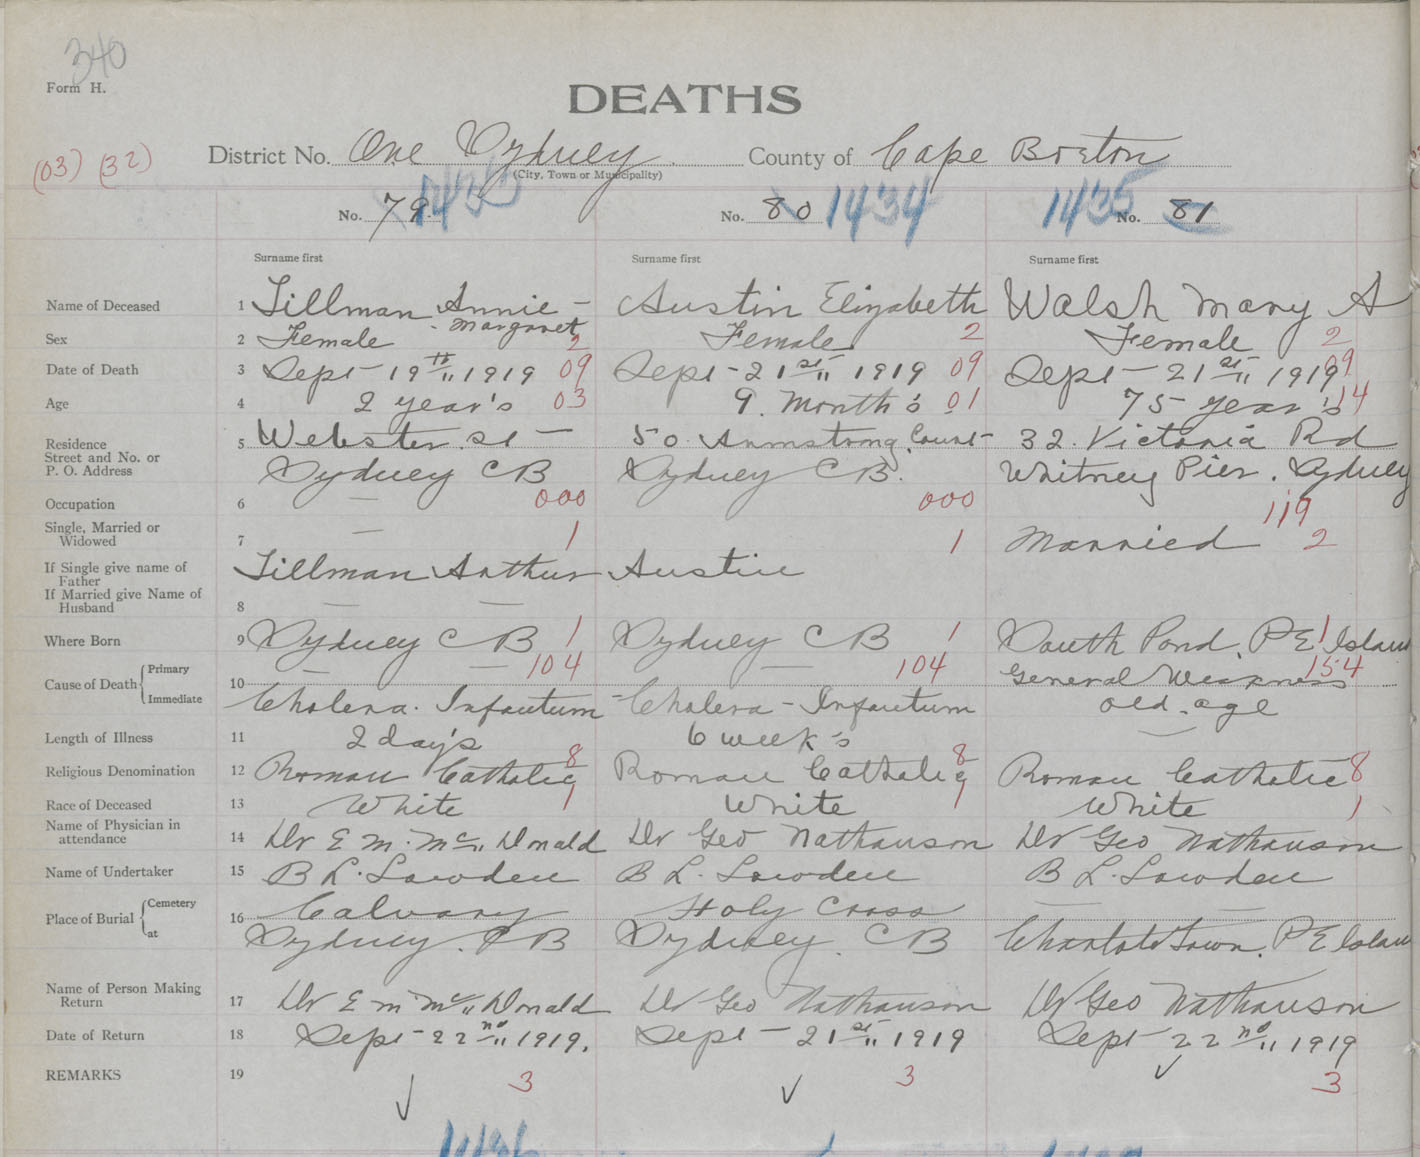 340
Form H.
DEATHS
(03) (32)
District No. One Sydney County of Cape Breton
(City, Town or Municipality)
No. 79. No. 80 1434 1435 No. 81
Surname first Surname first Surname first
Name of Deceased 1 Tillman Annie - Margaret Austin Elizabeth Walsh Mary A
Sex 2 Female 2 Female 2 Female 2
Date of Death 3 Sept - 19th 1919 09 Sept - 21st 1919 09 Sept - 21st 1919 09
Age 4 2 year's 03 9. Month's 01 75 year's 14
Residence Street and No. or P. O. Address 5 Webster St - 50 Armstrong Court - 32. Victoria Rd
Sydney CB Sydney CB. Whitney Pier. Sydney
Occupation 6 — 000 000 119
Single, Married or Widowed 7 — 1 1 Married 2
If Single give name of Father Tillman Arthur Austin
If Married give Name of Husband 8 — —
Where Born 9 Sydney CB 1 Sydney CB 1 South Pond. PE Island 1
Cause of Death { Primary 10 — — 104 — 104 General Weakness 154
Immediate Cholera. Infantum - Cholera - Infantum old. age
Length of Illness 11 2 day's 6 week's —
Religious Denomination 12 Roman Catholic 8 Roman Catholic 8 Roman Catholic 8
Race of Deceased 13 White 1 White 1 White 1
Name of Physician in attendance 14 Dr E M. Mc Donald Dr Geo Nathanson Dr Geo Nathanson
Name of Undertaker 15 B L. Lowden B L. Lowden B L. Lowden
Place of Burial { Cemetery 16 Calvary Holy Cross — —
at Sydney. CB Sydney. CB Charlottetown. PE Island
Name of Person Making Return 17 Dr E M Mc Donald Dr Geo Nathanson Dr Geo Nathanson
Date of Return 18 Sept - 22nd 1919. Sept - 21st 1919 Sept - 22nd 1919
REMARKS 19 3 3 3
1436